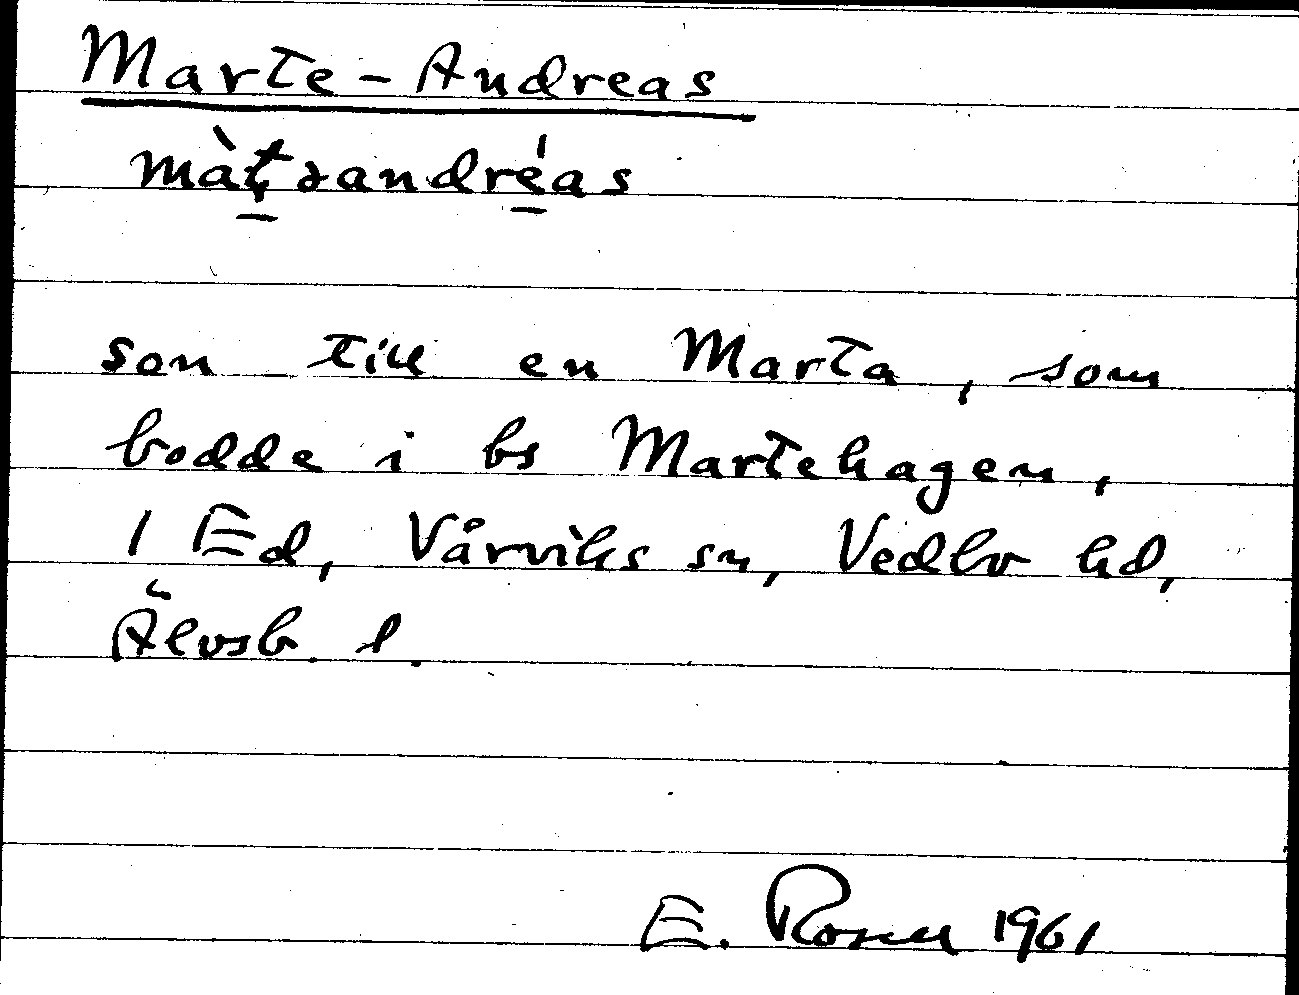 Marte-Andreas
màʈəandréas
son till en Marta, som
bodde i bs Martehagen,
1 Ed, Vårviks sn, Vedbo hd,
Älvsb. l.
E. Rosen 1961